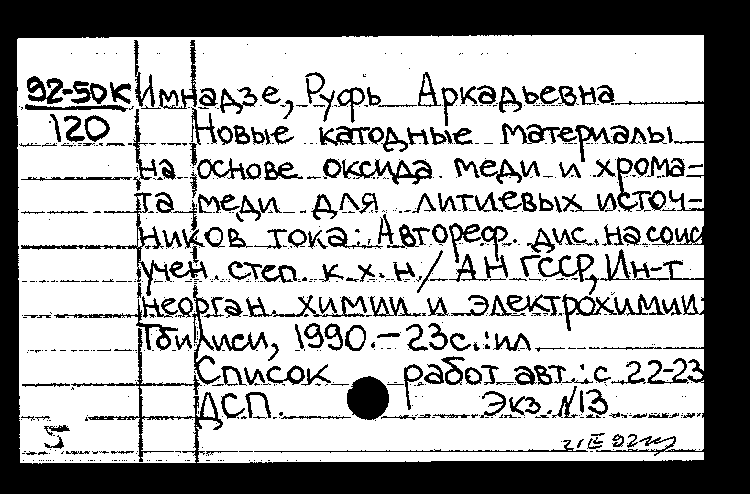 92-50К Имнадзе, Руфь Аркадьевна
120 Новые катодные материалы
на основе оксида меди и хрома=
та меди для литиевых источ=
ников тока: Автореф. дис. на соиск
учен. степ. к. х. н / АН ГССР, Ин-т
неорган. химии и электрохимии:
Тбилиси, 1990.- 23с.:ил.
Список работ авт.: с. 22-23
ДСП. Экз. №13
5